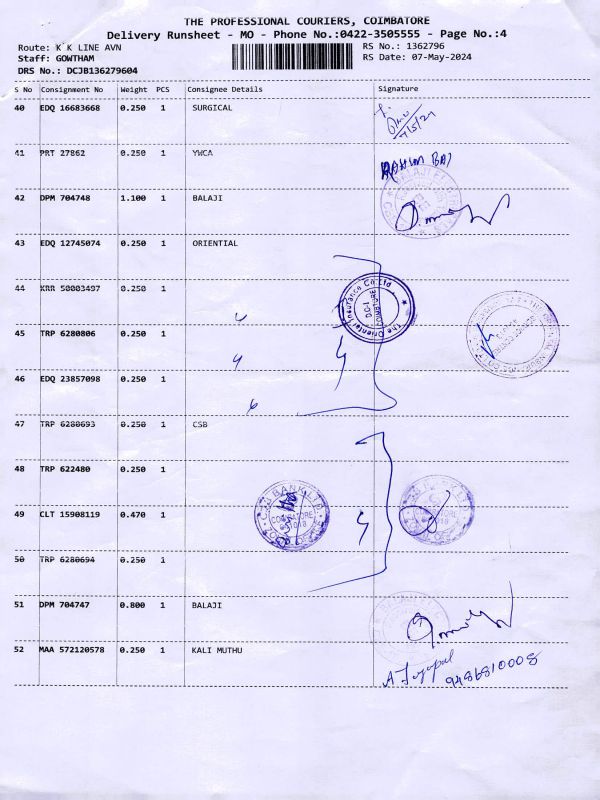 THE PROFESSIONAL COURIERS, COIMBATORE
Delivery Runsheet - MO - Phone No.:0422-3505555 - Page No.:4
Route: K K LINE AVN RS No.: 1362796
Staff: GOWTHAM RS Date: 07-May-2024
DRS No.: DCJB136279604
S No Consignment No Weight PCS Consignee Details Signature
40 EDQ 16683668 0.250 1 SURGICAL
7/5/24
41 PRT 27862 0.250 1 YWCA
42 DPM 704748 1.100 1 BALAJI
43 EDQ 12745074 0.250 1 ORIENTIAL
44 KRR 50003497 0.250 1
The Oriental Insurance Co Ltd
45 TRP 6280806 0.250 1
46 EDQ 23857098 0.250 1
47 TRP 6280693 0.250 1 CSB
48 TRP 622480 0.250 1
BANK LTD
COIMBATORE
49 CLT 15908119 0.470 1
50 TRP 6280694 0.250 1
51 DPM 704747 0.800 1 BALAJI
52 MAA 572120578 0.250 1 KALI MUTHU
9486810008